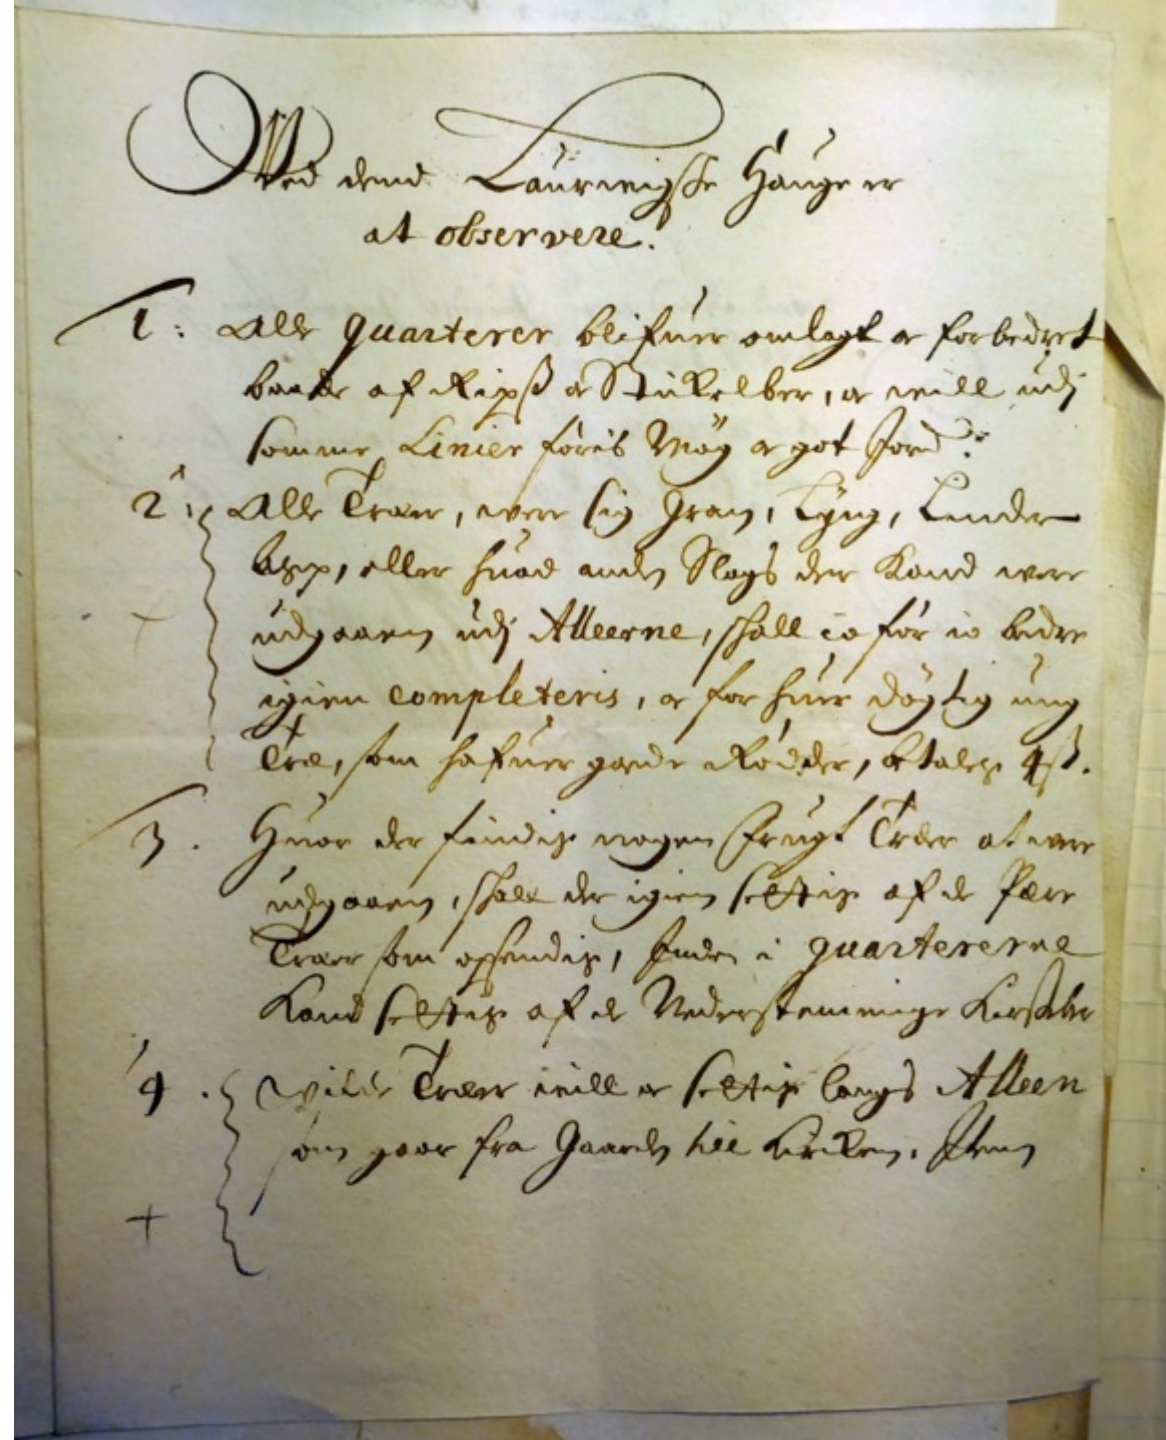 Ved dend Laurwigske Hauge er
at observere.
1: Alle quarterer blifuer omlagt og forbedret
baade af Ribß og Stikelber, og will udj
somme Linier föris Møg og got Jord.
2. Alle Træer, were sig Gran, Lyng, Linder
Asp, eller huad anden Slags der Kand were
udgaaen udj Alleerne, skall io för io bedre
igien completeris, og for huer dögtig ung
Træ, som hafuer goede Rödder, betales 4ß.
3. Huor der findis nogen Frugt Træer at were
udgaaen, skall der igien settis af de Pære
Træer som opsendis, Inden i quartererne
Kand settis af de Nederstammige Kirseber
4. Wilde Træer will og settis langs Alleen
som gaar fra Gaarden till Kircken. Item